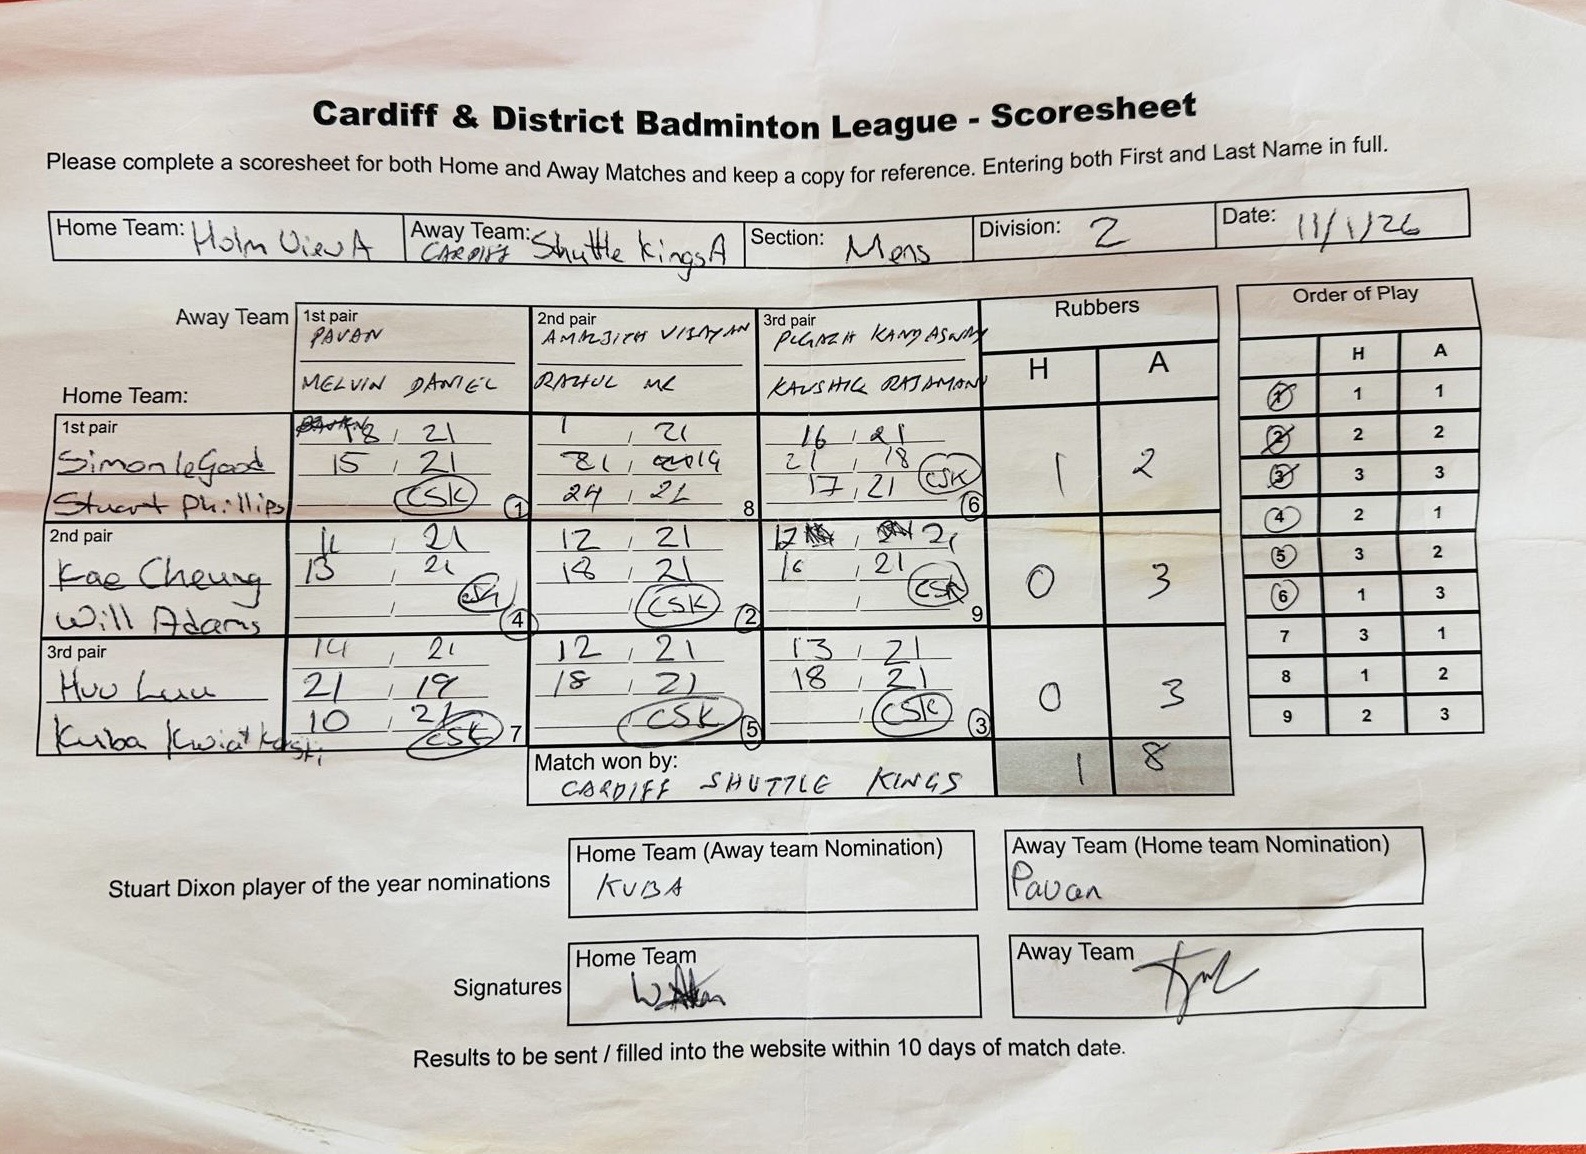 Cardiff & District Badminton League - Scoresheet
Please complete a scoresheet for both Home and Away Matches and keep a copy for reference. Entering both First and Last Name in full.
Home Team: Holm View A Away Team: CARDIFF Shuttle Kings A Section: Mens Division: 2 Date: 11/1/26
Away Team 1st pair 2nd pair 3rd pair Rubbers Order of Play
PAVAN AMALJITH VIJAYAN KANDASWAY
MELVIN DANIEL RAHUL MC KAUSHIK RAJAMANI H A
Home Team:
H A
1 1 1
2 2 2
3 3 3
4 2 1
5 3 2
6 1 3
7 3 1
8 1 2
9 2 3
1st pair 18, 21 , 21 16, 21
Simon leGood 15, 21 21, 19 21, 18 CSK 1 2
Stuart Phillips CSK 1 24, 22 8 17, 21 6
2nd pair 11, 21 12, 21 12, 21
Kae Cheung 13, 21 18, 21 16, 21 0 3
Will Adams CSK 4 CSK 2 CSK 9
3rd pair 14, 21 12, 21 13, 21
Huu Luu 21, 19 18, 21 18, 21 0 3
Kuba 10, 21 CSK 7 CSK 5 CSK 3
Match won by: 1 8
CARDIFF SHUTTLE KINGS
Stuart Dixon player of the year nominations
Home Team (Away team Nomination)
KUBA
Away Team (Home team Nomination)
Pavan
Signatures
Home Team
Away Team
Results to be sent / filled into the website within 10 days of match date.